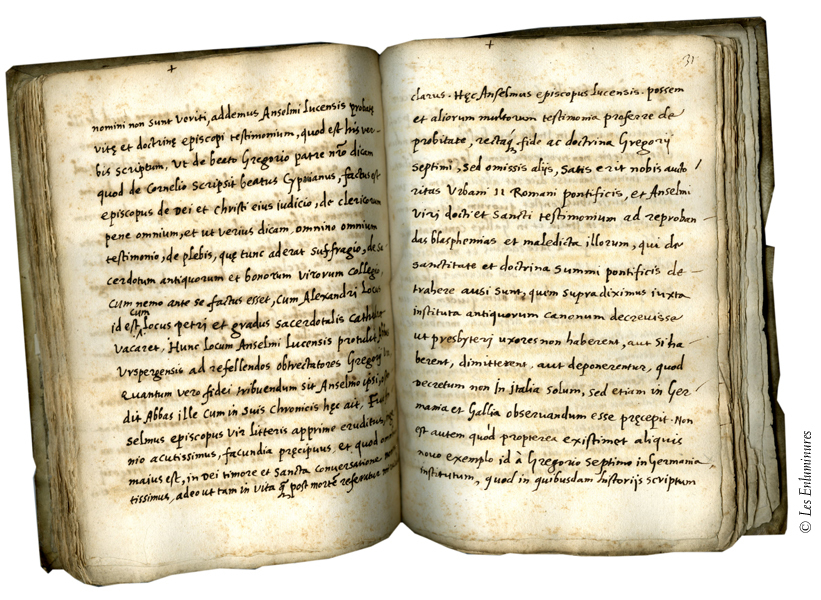 +
nomini non sunt veriti, addemus Anselmi Lucensis probatę
vitę et doctrinę episcopi testimonium, quod est his ver-
bis scriptum, Ut de beato Gregorio patre nr̃o dicam
quod de Cornelio scripsit beatus Cyprianus, factus est
episcopus de Dei et Christi eius iudicio, de clericorum
pene omnium, et ut verius dicam, omnino omnium
testimonio, de plebis, quę tunc aderat suffragio, de sa
cerdotum antiquorum et bonorum virorum collegio,
cum nemo ante se factus esset, cum Alexandri locus
cum
id est, locus petri et gradus sacerdotalis cathedrę
vacaret. Hunc locum Anselmi Lucensis protulit
Urspergensis ad refellendos obtrectatores Gregorij
quantum vero fidei tribuendum sit Anselmo ipsi,
dit Abbas ille cum in suis Chronicis hęc ait,
selmus episcopus vir litteris apprime eruditus,
nio acutissimus, facundia pręcipuus, et quod omnibus
maius est, in Dei timore et sancta conversatione
tissimus, adeo ut tam in vita q̃ post mortẽ referatur
+
31
clarus. Hęc Anselmus episcopus Lucensis. possem
et aliorum multorum testimonia proferre de
probitate, rectaq́, fide ac doctrina Gregorij
septimi, sed omissis alijs, satis erit nobis aucto
ritas Urbani II Romani pontificis, et Anselmi
virj docti et sancti testimonium ad reproban-
das blasphemias et maledicta illorum, qui de
sanctitate et doctrina summi pontificis de-
trahere ausi sunt, quem supradiximus iuxta
instituta antiquorum canonum decrevisse
ut presbyterj uxores non haberent, aut si ha-
berent, dimitterent, aut deponerentur, quod
decretum non in italia solum, sed etiam in Ger-
mania et Gallia observandum esse pręcepit. Non
est autem quòd propterea existimet aliquis
novo exemplo id à Gregorio septimo in Germania
institutum, quod in quibusdam historijs scriptum
© Les Enluminures